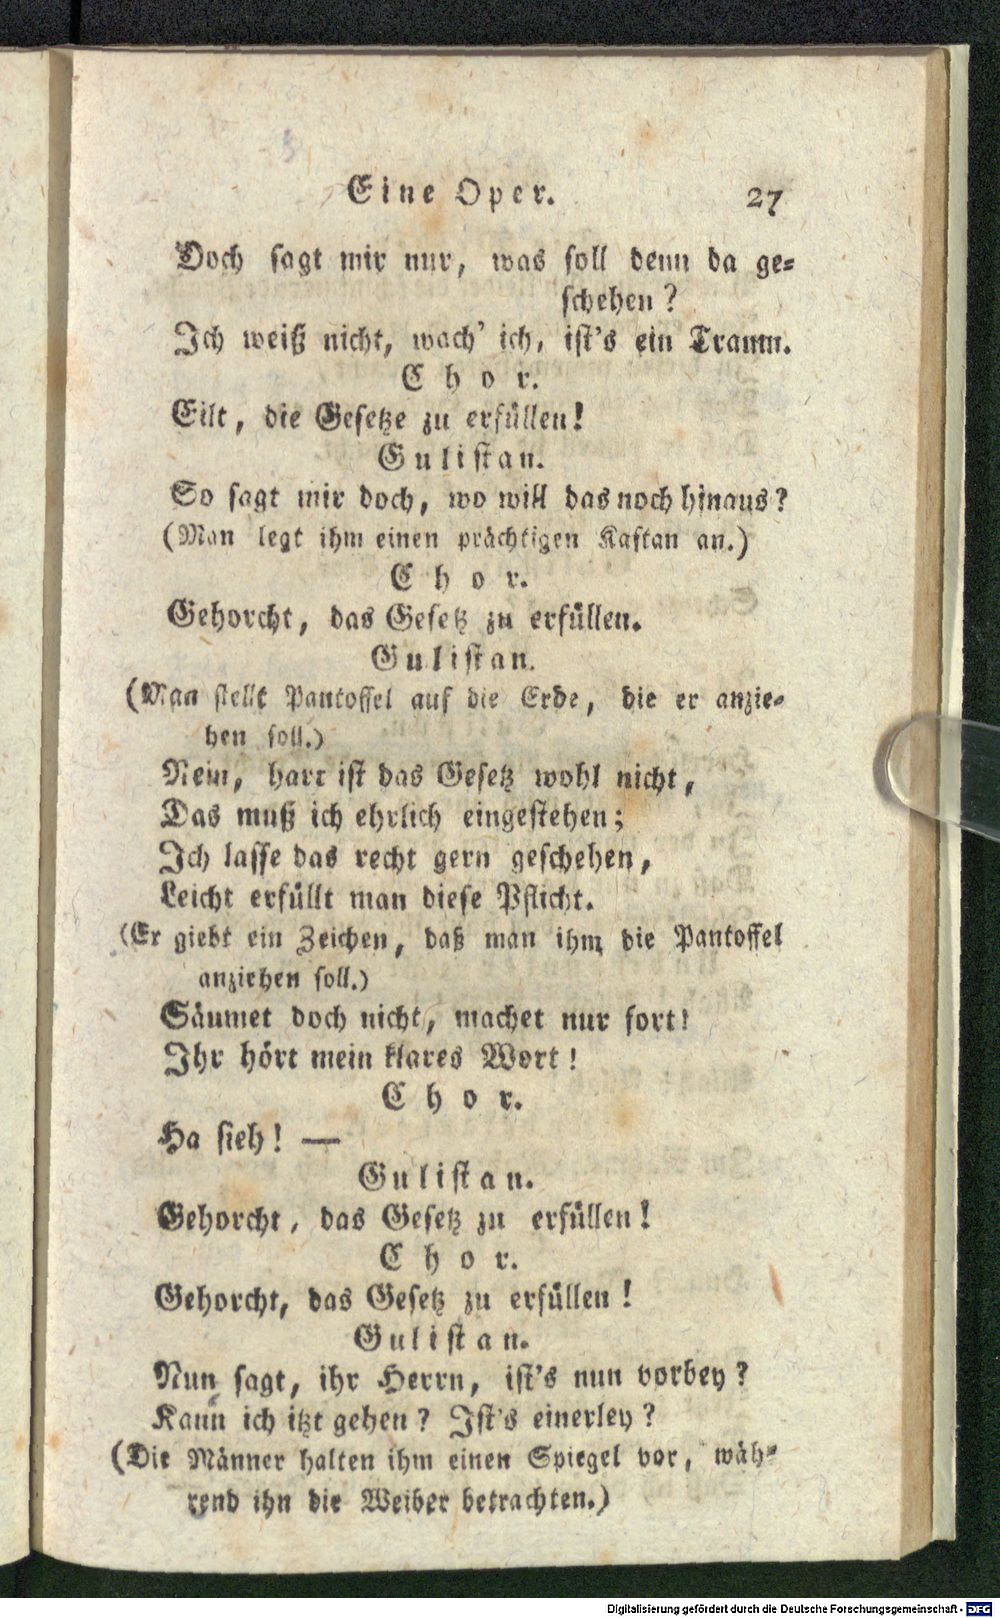 Eine Oper. 27
Doch sagt mir nur, was soll denn da ge-
schehen?
Ich weiß nicht, wach' ich, ist's ein Traum.
Chor.
Eilt, die Gesetze zu erfüllen!
Gulistan.
So sagt mir doch, wo will das noch hinaus?
(Man legt ihm einen prächtigen Kaftan an.)
Chor.
Gehorcht, das Gesetz zu erfüllen.
Gulistan.
(Man stellt Pantoffel auf die Erde, die er anzie-
hen soll.)
Nein, hart ist das Gesetz wohl nicht,
Das muß ich ehrlich eingestehen;
Ich lasse das recht gern geschehen,
Leicht erfüllt man diese Pflicht.
(Er giebt ein Zeichen, daß man ihm die Pantoffel
anziehen soll.)
Säumet doch nicht, machet nur fort!
Ihr hört mein klares Wort!
Chor.
Ha sieh! —
Gulistan.
Gehorcht, das Gesetz zu erfüllen!
Chor.
Gehorcht, das Gesetz zu erfüllen!
Gulistan.
Nun sagt, ihr Herrn, ist's nun vorbey?
Kann ich itzt gehen? Ist's einerley?
(Die Männer halten ihm einen Spiegel vor, wäh-
rend ihn die Weiber betrachten.)
Digitalisierung gefördert durch die Deutsche Forschungsgemeinschaft - DFG